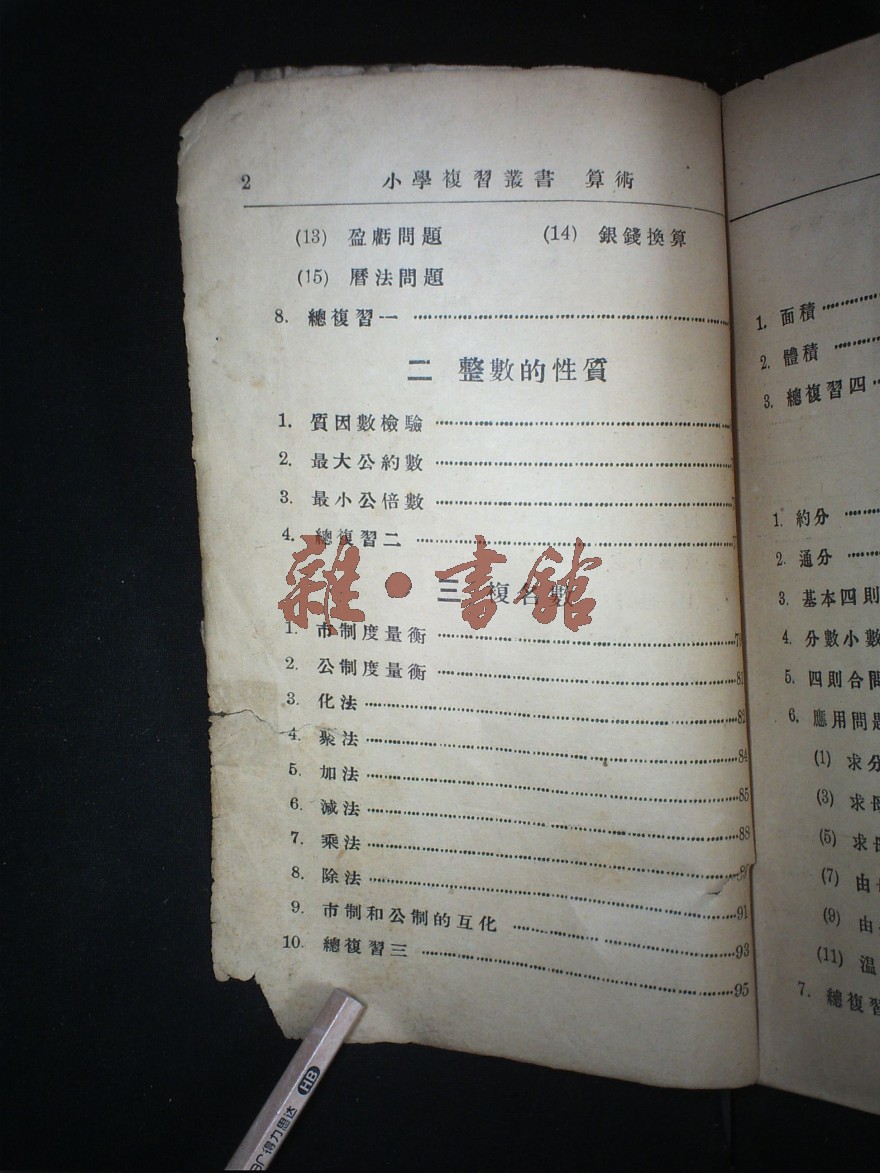 2 小學複習叢書 算術
(13) 盈虧問題 (14) 銀錢換算
(15) 曆法問題
8. 總複習一
二 整數的性質
1. 質因數檢驗
2. 最大公約數
3. 最小公倍數
4. 總複習二
三 複名數
1. 市制度量衡
2. 公制度量衡 81
3. 化法 82
4. 聚法 84
5. 加法 85
6. 減法 88
7. 乘法
8. 除法 91
9. 市制和公制的互化 93
10. 總複習三 95
雜·書館
HB
得力思达
1. 面積
2. 體積
3. 總複習四
1. 約分
2. 通分
3. 基本四則
4. 分數小數
5. 四則合問
6. 應用問題
(1) 求分
(3) 求母
(5) 求母
(7) 由
(9) 由
(11) 溫
7. 總複習